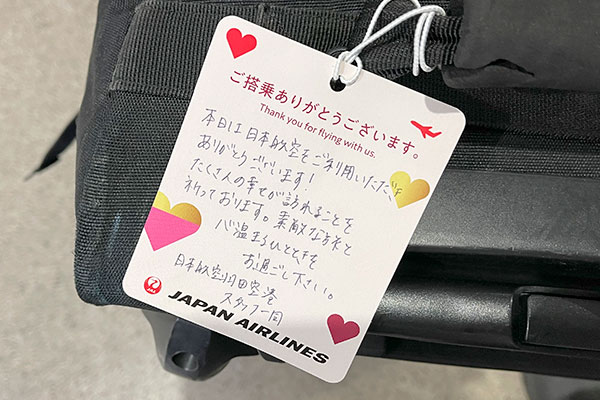 ご搭乗ありがとうございます。
Thank you for flying with us.
本日は日本航空をご利用いただき
ありがとうございます!
たくさんの幸せが訪れることを
祈っております。素敵な方々と
心温まるひとときを
お過ごし下さい。
日本航空羽田空港
スタッフ一同
JAPAN AIRLINES